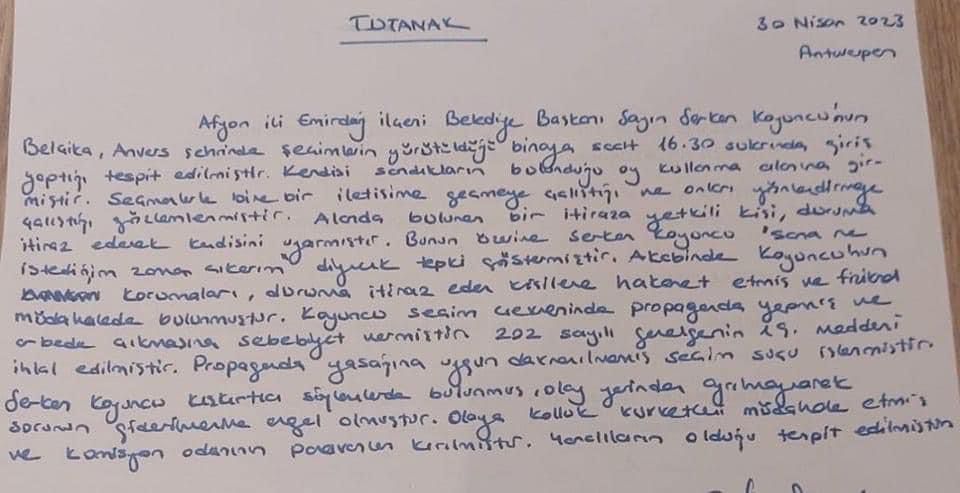 TUTANAK
30 Nisan 2023
Antwerpen
Afyon ili Emirdağ ilçeni Belediye Başkanı Sayın Serkan Koyuncu'nun
Belçika, Anvers şehrinde seçimlerin yürütüldüğü binaya saat 16.30 sularında giriş
yaptığı tespit edilmiştir. Kendisi sandıkların bulunduğu oy kullanma alanına gir-
miştir. Seçmenlerle bire bir iletisime geçmeye çalıştığı ve onları yönlendirmeye
çalıştığı gözlemlenmiştir. Alanda bulunan bir itiraza yetkili kişi, duruma
itiraz ederek kendisini uyarmıştır. Bunun üzerine Serkan Koyuncu "sana ne
istediğim zaman çıkarım" diyerek tepki göstermiştir. Akabinde Koyuncu'nun
korumaları, duruma itiraz eden kişilere hakaret etmiş ve fiziksel
müdahalede bulunmuştur. Koyuncu seçim çevreninde propaganda yapmış ve
arbede çıkmasına sebebiyet vermiştir. 202 sayılı genelgenin 19. maddeni
ihlal edilmiştir. Propaganda yasağına uygun davranılmamış seçim suçu işlenmiştir.
Serkan Koyuncu kışkırtıcı söylemlerde bulunmuş, olay yerinden ayrılmayarak
sorunun giderilmesine engel olmuştur. Olaya kolluk kuvvetleri müdahale etmiş
ve komisyon odasının paravanları kırılmıştır. Yaralıların olduğu tespit edilmiştir